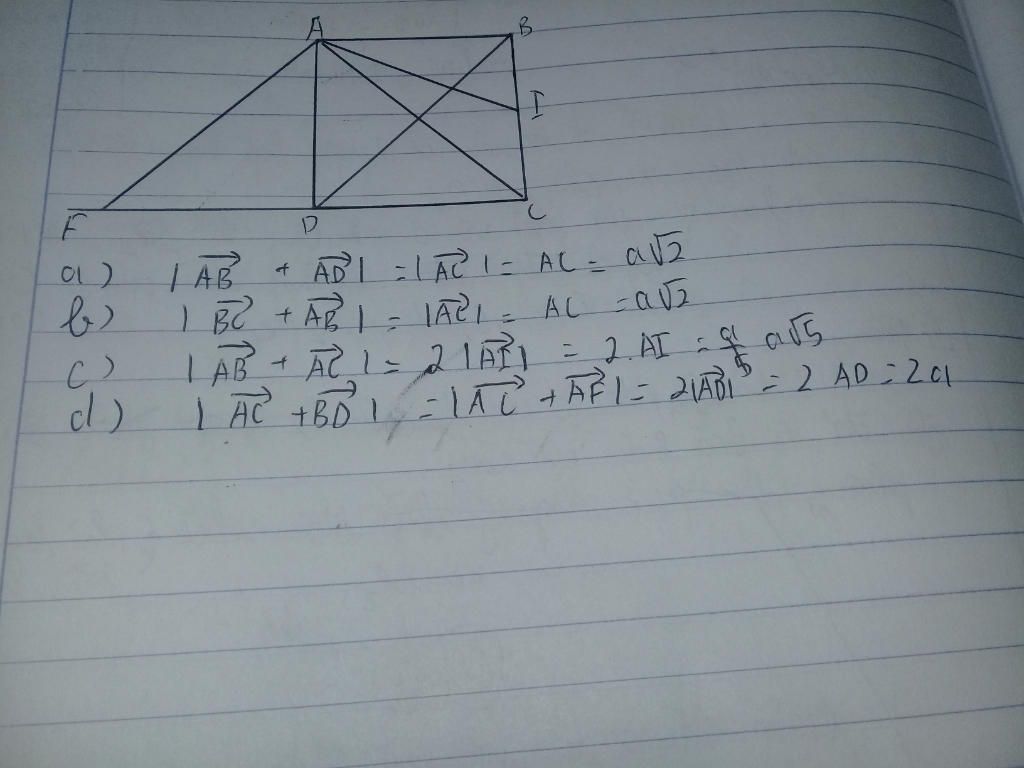 A B
I
F D C
a) |AB⃗ + AD⃗| = |AC⃗| = AC = a√2
b) |BC⃗ + AB⃗| = |AC⃗| = AC = a√2
c) |AB⃗ + AC⃗| = 2|AI⃗| = 2.AI = a√5
d) |AC⃗ + BD⃗| = |AC⃗ + AF⃗| = 2|AD⃗| = 2 AD = 2a